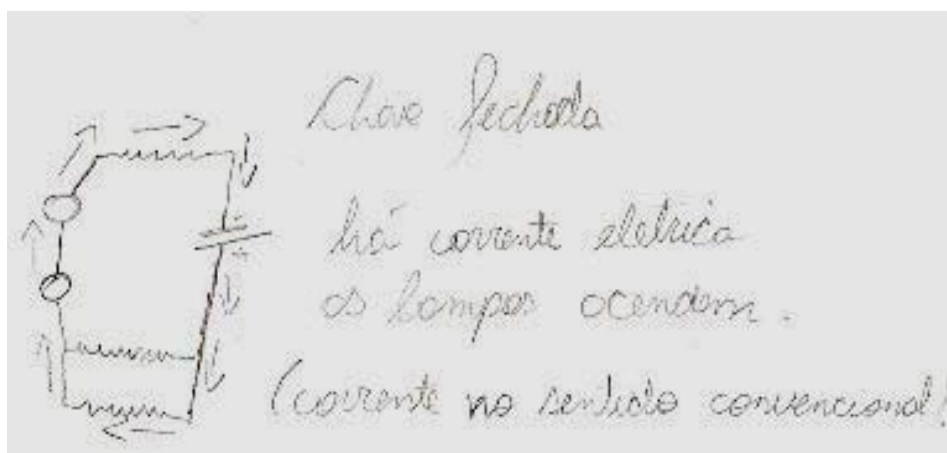 Chave fechada
há corrente eletrica
as lampas acendem.
(corrente no sentido convencional)
- 
+